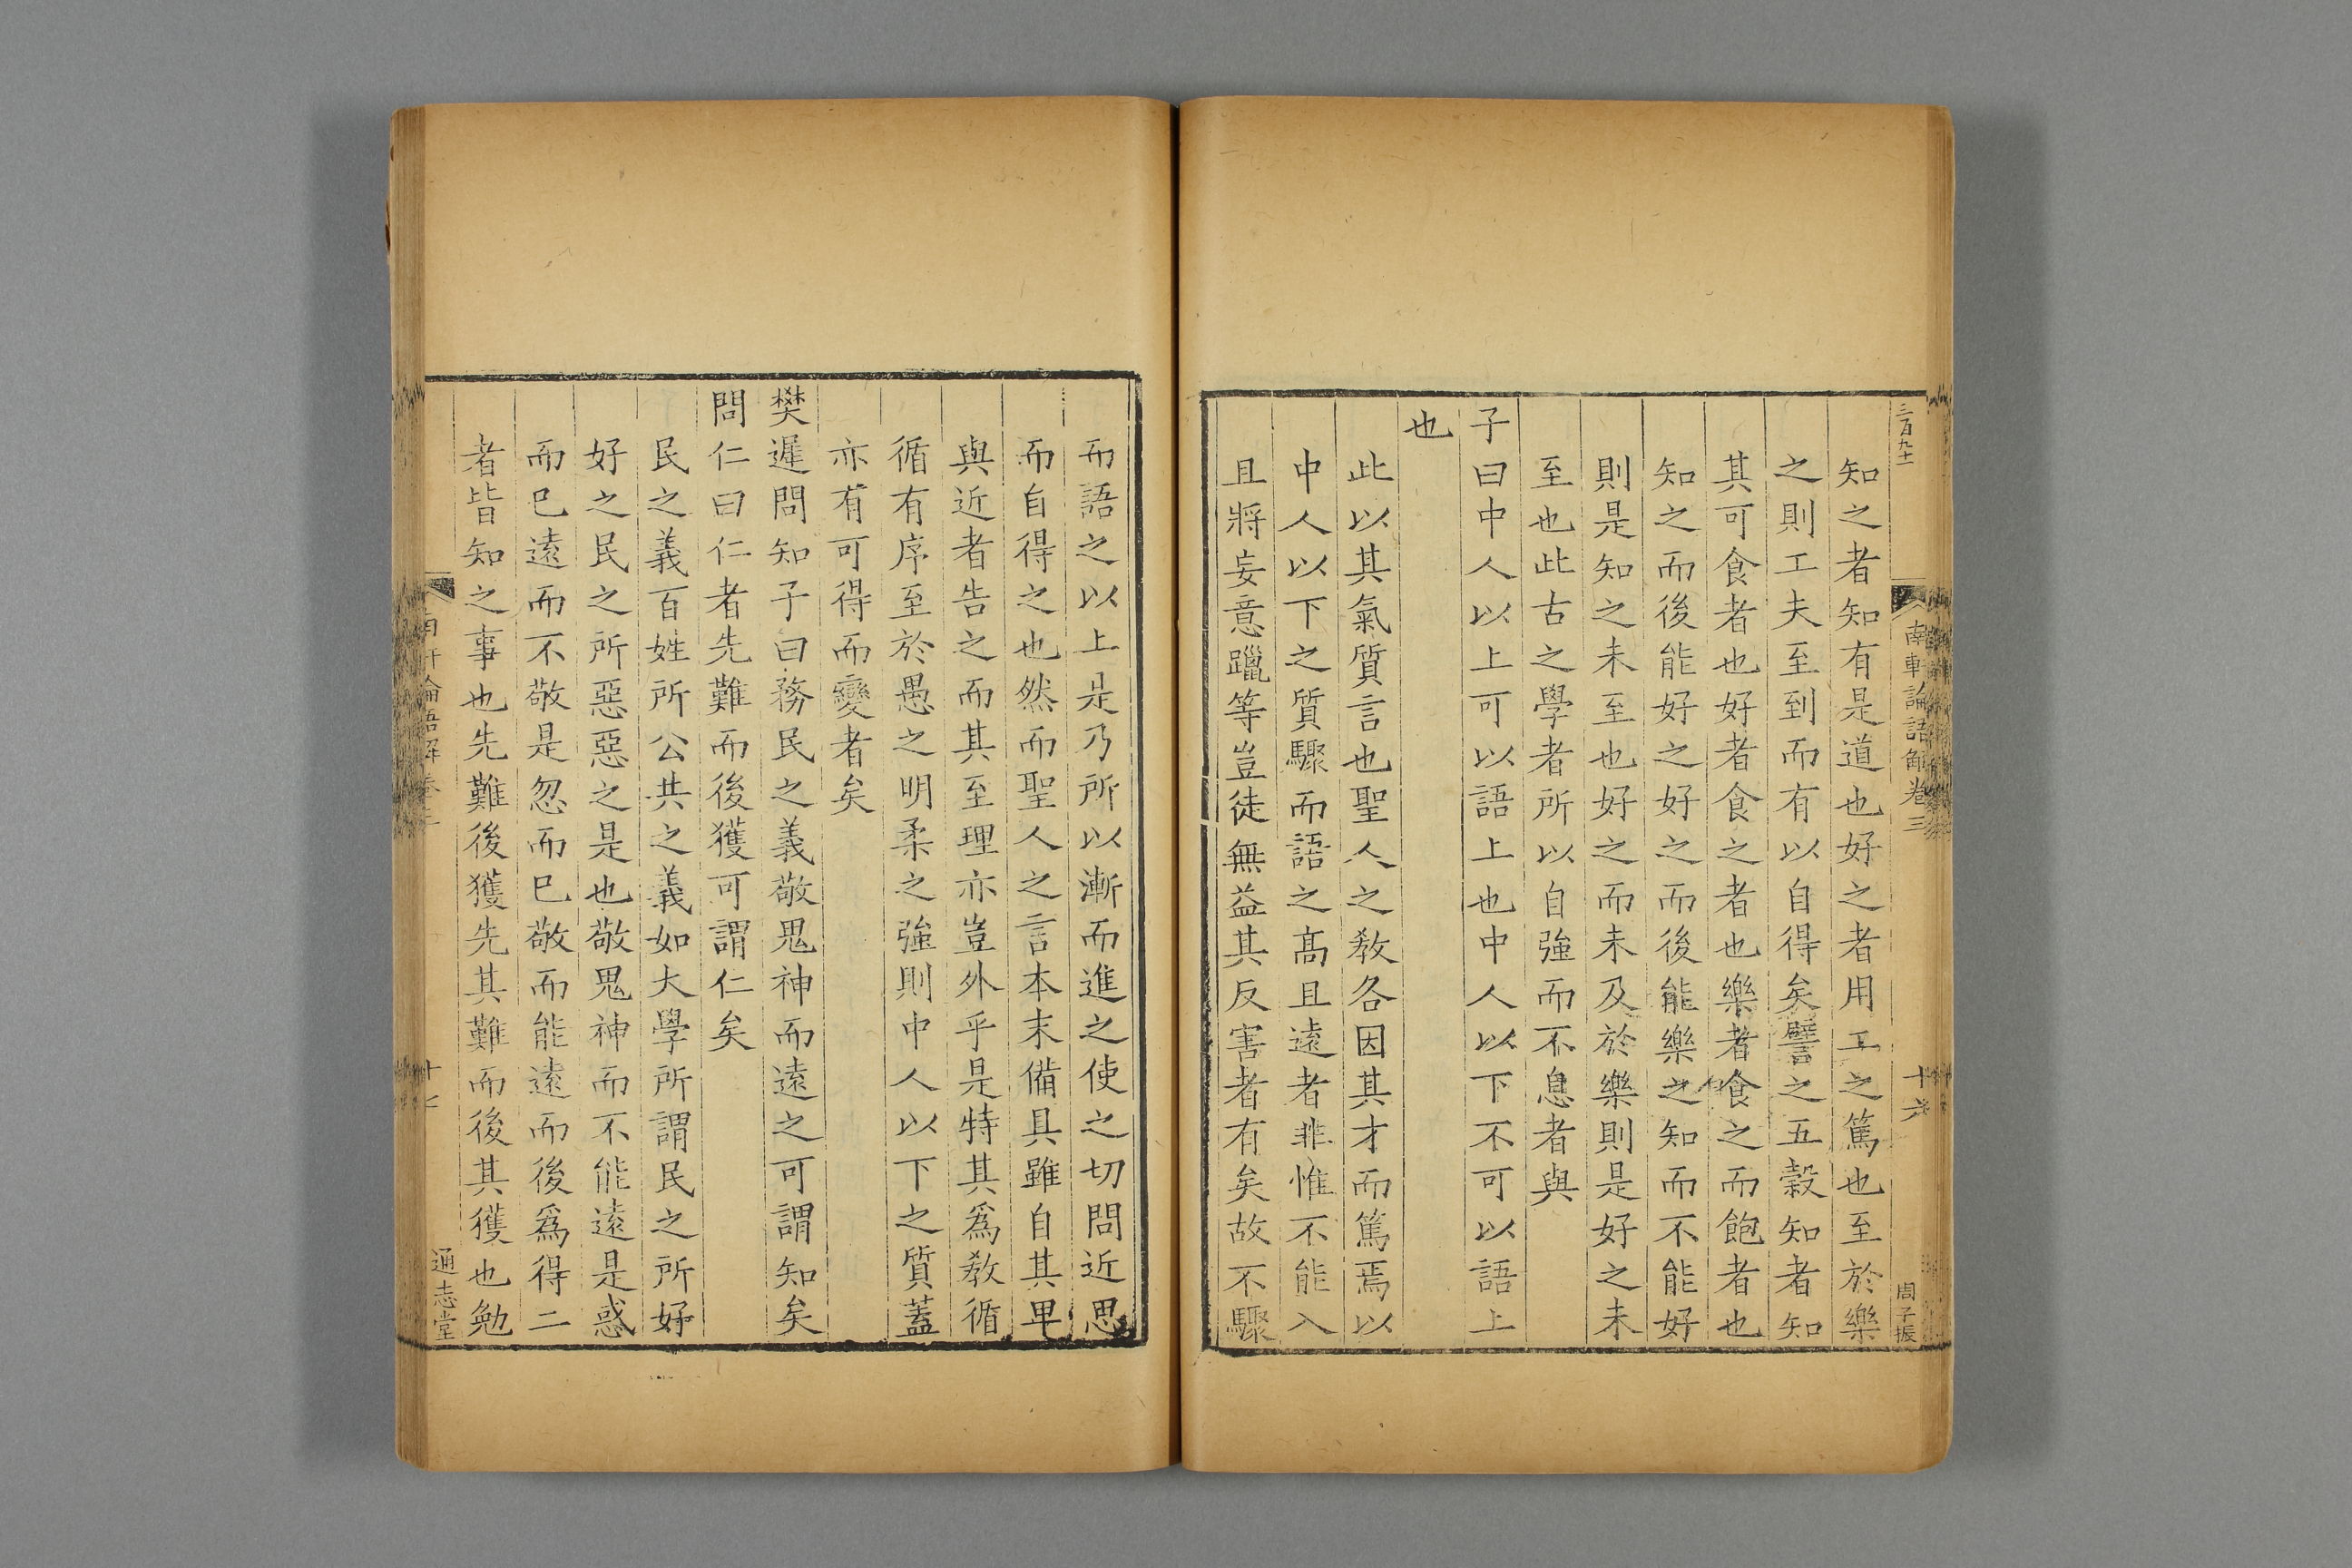 三百九十一
南軒論語解卷三
十六
周子振
知之者知有是道也好之者用工之篤也至於樂
之則工夫至到而有以自得矣譬之五穀知者知
其可食者也好者食之者也樂者食之而飽者也
知之而後能好之好之而後能樂之知而不能好
則是知之未至也好之而未及於樂則是好之未
至也此古之學者所以自強而不息者與
子曰中人以上可以語上也中人以下不可以語上
也
此以其氣質言也聖人之敎各因其才而篤焉以
中人以下之質驟而語之髙且遠者非惟不能入
且將妄意躐等豈徒無益其反害者有矣故不驟
而語之以上是乃所以漸而進之使之切問近思
而自得之也然而聖人之言本末備具雖自其卑
與近者告之而其至理亦豈外乎是特其爲敎循
循有序至於愚之明柔之強則中人以下之質蓋
亦有可得而變者矣
樊遲問知子曰務民之義敬鬼神而遠之可謂知矣
問仁曰仁者先難而後獲可謂仁矣
民之義百姓所公共之義如大學所謂民之所好
好之民之所惡惡之是也敬鬼神而不能遠是惑
而已遠而不敬是忽而已敬而能遠而後爲得二
者皆知之事也先難後獲先其難而後其獲也勉
南軒論語解卷三
十七
通志堂